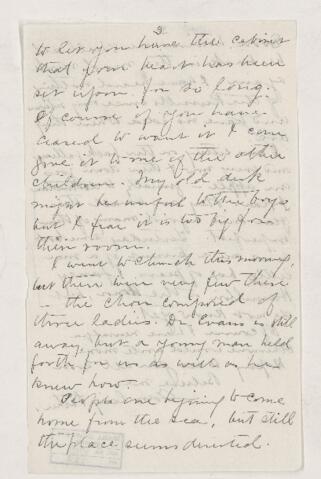 3
to let you have the cabinet
that your heart has been
set upon for so long.
Of course if you have
ceased to want it I can
give it to one of the other
children. My old desk
might be useful to the boys,
but I fear it is too big for
their room.
I went to church this morning,
but there were very few there
- the choir composed of
three ladies. Dr. Evans is still
away, but a young man held
forth for us as well as he
knew how.
People are begining to come
home from the sea, but still
the place seems deserted.